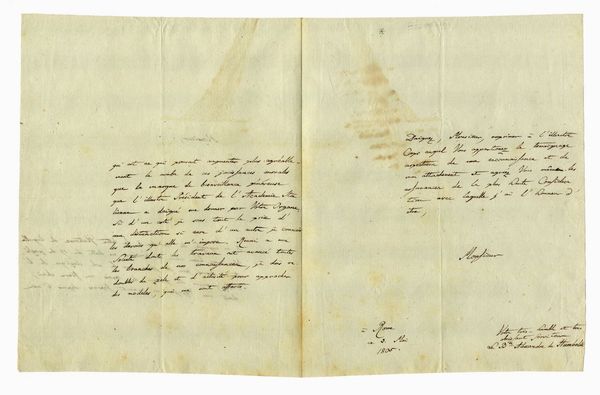 qui est ce qui pouvait augmenter plus agréable-
ment le nombre de ces jouissances morales
que la marque de bienveillance généreuse
que l'illustre Président de l'Academie Ita
lienne a daigné me donner par Votre Organe.
Si d'un coté je sens tout le prix d'
une distinction si rare d'un autre je connais
les devoirs qu'elle m'impose. Reuni a une
Société dont les travaux ont avancé toutes
les branches de nos connaissances, je dois re
doubler de zèle et d'activité pour approcher
les modèles, qui me sont offerts.
Daignez, Monsieur, exprimer à l'illustre
Corps auquel Vous appartenez le témoignage
respectueux de ma reconnaissance et de
mon attachement et agréez Vous même les
assurances de la plus haute Considéra
tion avec laquelle j'ai l'honneur d'
être,
Monsieur
à Rome
ce 3. Mai
1805.
Votre très humble et très
obéissant serviteur
Le Bn Alexandre de Humboldt